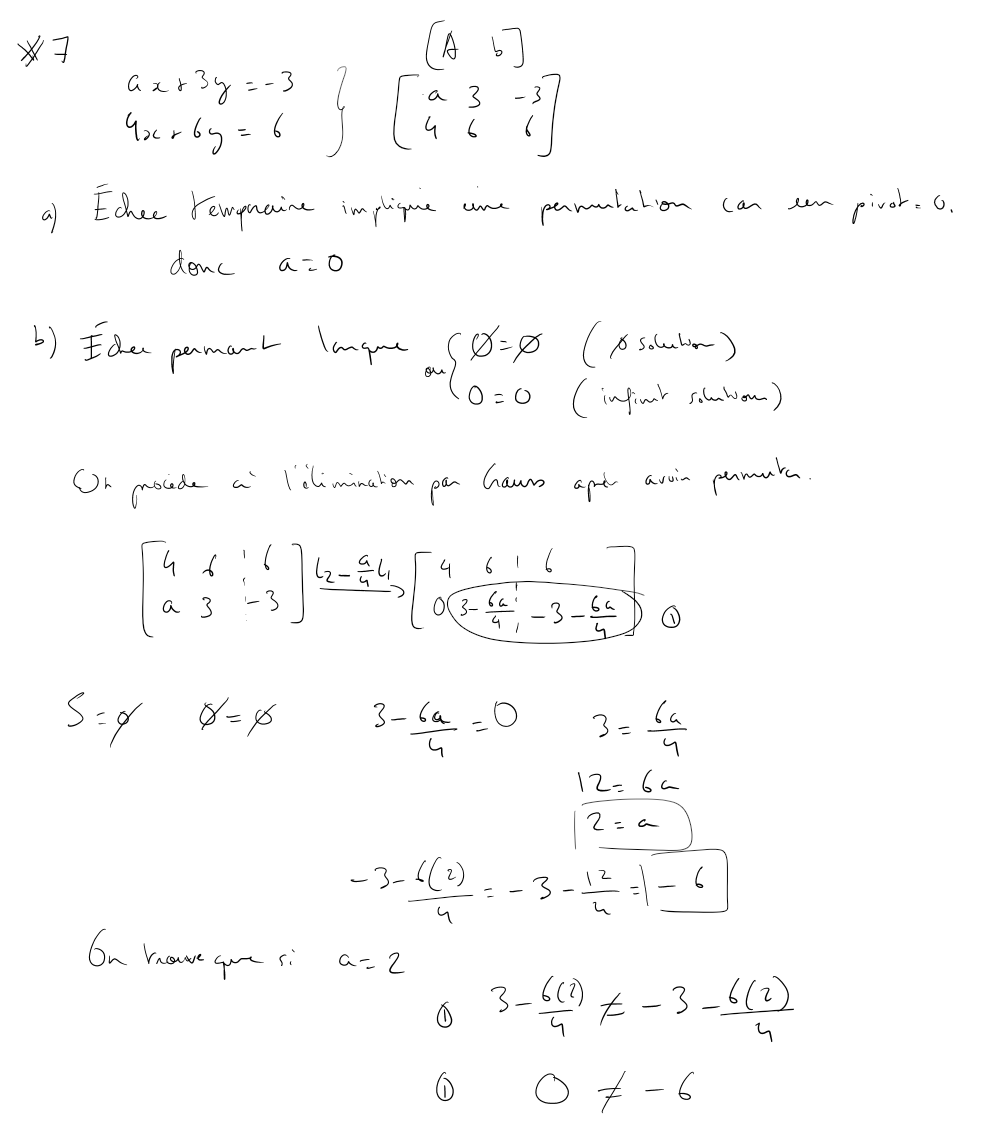 #7
[A b]
ax + 3y = -3
4x + 6y = 6
[a 3 -3
4 6 6]
a) Échec temporaire implique une permutation car un pivot = 0.
donc a = 0
b) Échec permant lorque ou { Ø = Ø (Ø solution)
0 = 0 (infinit solutions)
On procède à l'élimination par Gauss après avoir permuter.
[4 6 ¦ 6
a 3 ¦ -3] L2 - a/4 L1 → [4 6 ¦ 6
0 3 - 6a/4 ¦ -3 - 6a/4] ①
S = Ø Ø = Ø 3 - 6a/4 = 0 3 = 6a/4
12 = 6a
2 = a
-3 - 6(2)/4 = -3 - 12/4 = -6
On trouve que si a = 2
① 3 - 6(2)/4 ≠ -3 - 6(2)/4
① 0 ≠ -6